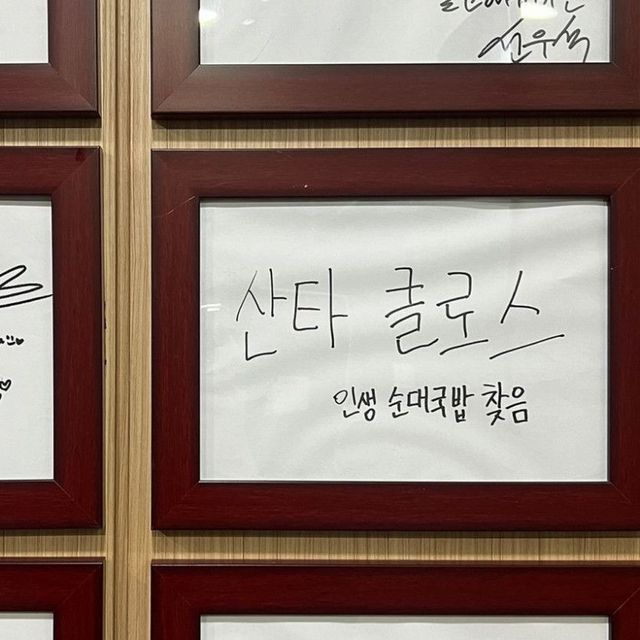 선우석
산타 클로스
인생 순대국밥 찾음